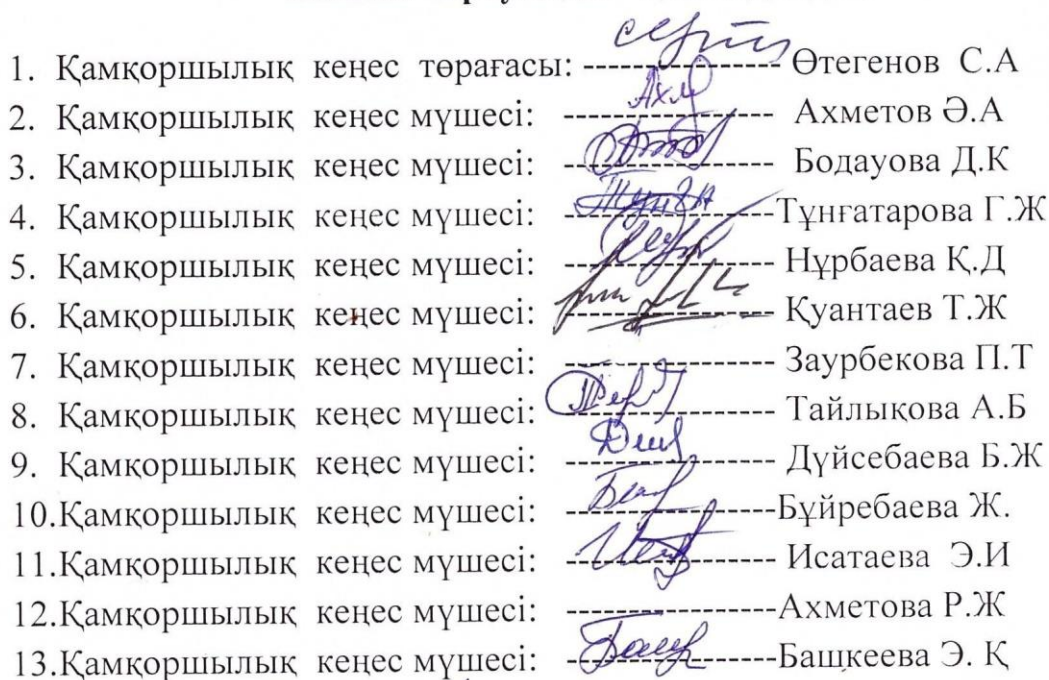 1. Қамқоршылық кеңес төрағасы: ----------------- Өтегенов С.А
2. Қамқоршылық кеңес мүшесі: ------------------ Ахметов Ә.А
3. Қамқоршылық кеңес мүшесі: ------------------ Бодауова Д.К
4. Қамқоршылық кеңес мүшесі: ------------------Тұнғатарова Г.Ж
5. Қамқоршылық кеңес мүшесі: ------------------ Нұрбаева Қ.Д
6. Қамқоршылық кеңес мүшесі: ------------------ Қуантаев Т.Ж
7. Қамқоршылық кеңес мүшесі: ------------------ Заурбекова П.Т
8. Қамқоршылық кеңес мүшесі: ------------------ Тайлықова А.Б
9. Қамқоршылық кеңес мүшесі: ------------------ Дүйсебаева Б.Ж
10.Қамқоршылық кеңес мүшесі: ------------------Бұйребаева Ж.
11.Қамқоршылық кеңес мүшесі: ------------------ Исатаева Э.И
12.Қамқоршылық кеңес мүшесі: ------------------Ахметова Р.Ж
13.Қамқоршылық кеңес мүшесі: ------------------Башкеева Э. Қ